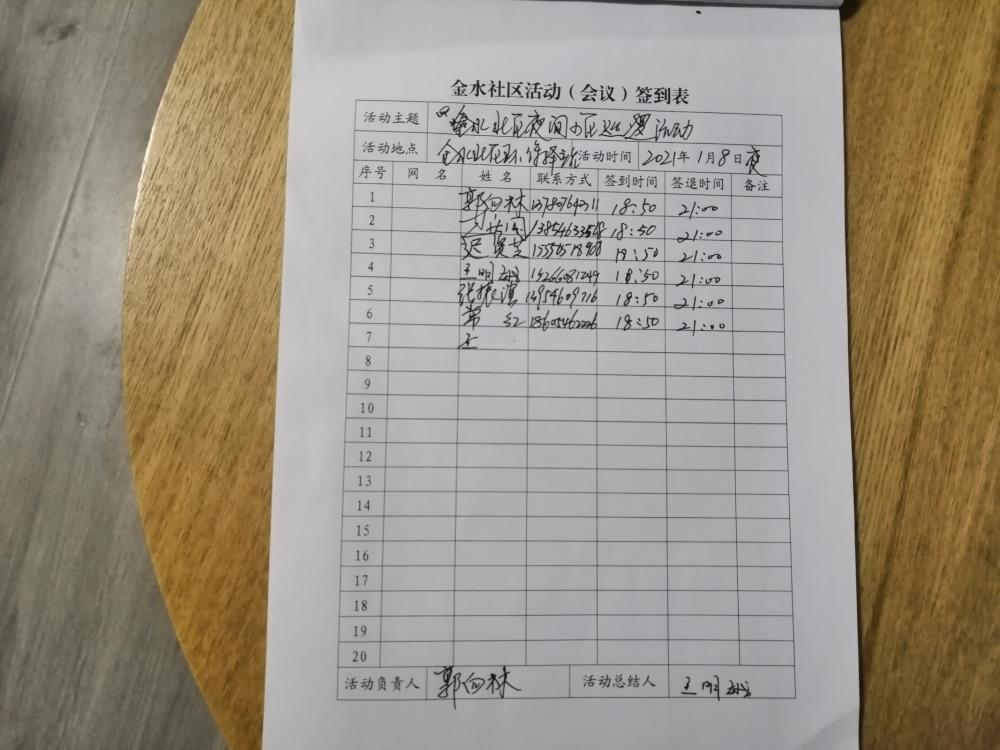 金水社区活动（会议）签到表
活动主题 金水社区夜间小区巡逻活动
活动地点 金水社区 活动时间 2021年1月8日夜
序号 网 名 姓 名 联系方式 签到时间 签退时间 备注
1 郭向林 18:50 21:00
2 18:50 21:00
3 迟贤芝 21:00
4 王明 18:50 21:00
5 张振滨 13954609716 18:50 21:00
6 常红 18605462226 18:50 21:00
7 王
8
9
10
11
12
13
14
15
16
17
18
19
20
活动负责人 郭向林 活动总结人 王明